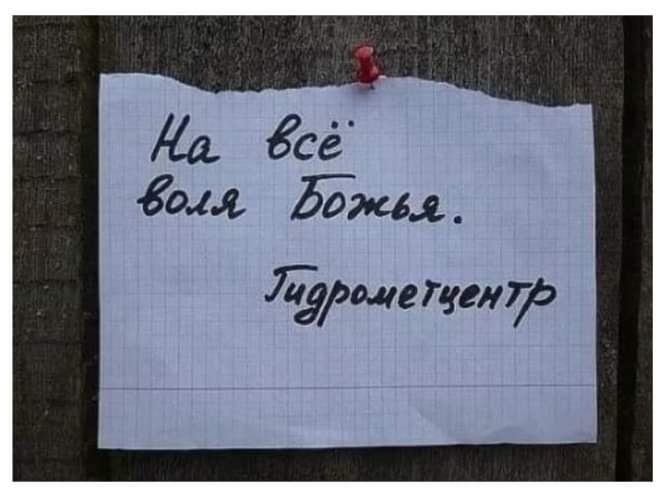 На всё
воля Божья.
Гидрометцентр